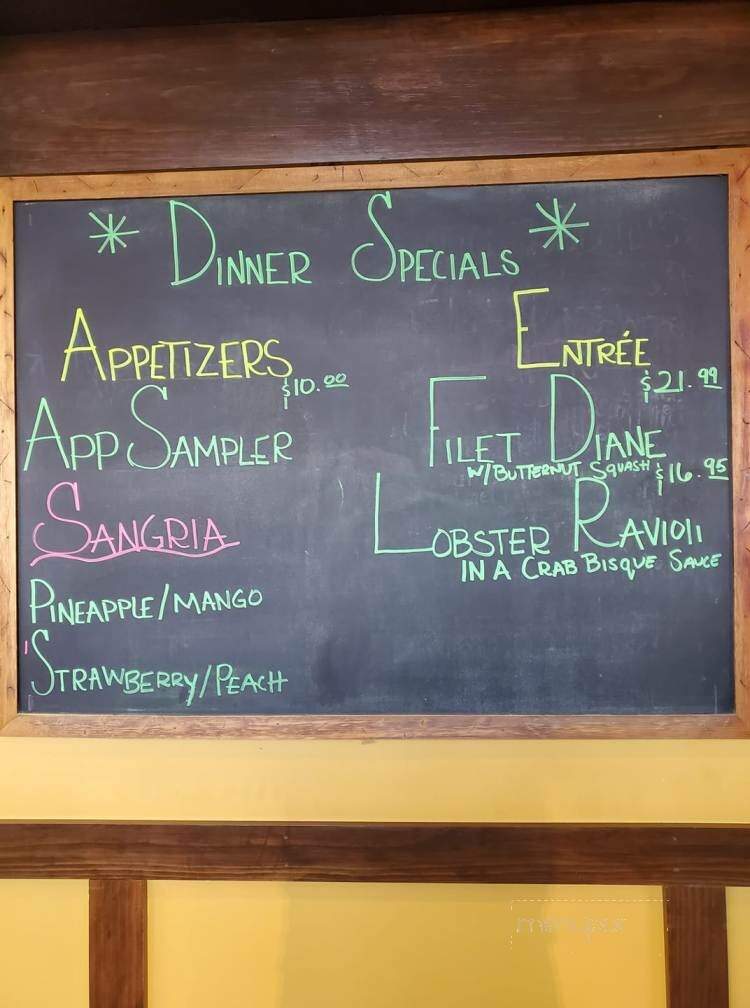 * Dinner Specials *
Appetizers
$10.00
App Sampler
Sangria
Pineapple/Mango
Strawberry/Peach
Entrée
$21.99
Filet Diane
w/ Butternut Squash
$16.95
Lobster Ravioli
in a Crab Bisque Sauce